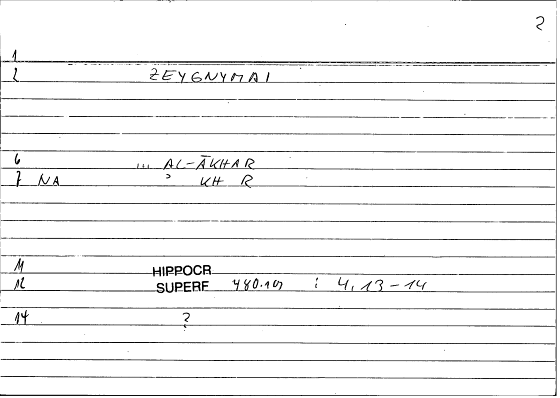 2
1
2 ZEYGNYMAI
6 ... AL-ĀKHAR
7 NA ʾ KH R
11 HIPPOCR
12 SUPERF 480.10 : 4, 13-14
14 ?